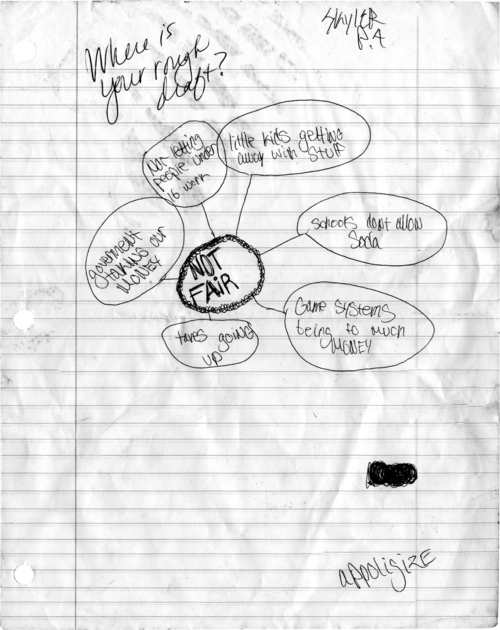 SKYLER
P.4
Where is
your rough
draft?
Not letting
people under
16 work
little kids getting
away with STUFF
government
taking our
MONEY
NOT
FAIR
schools dont allow
Soda
Game Systems
being to much
MONEY
taxes going
up
appoligize